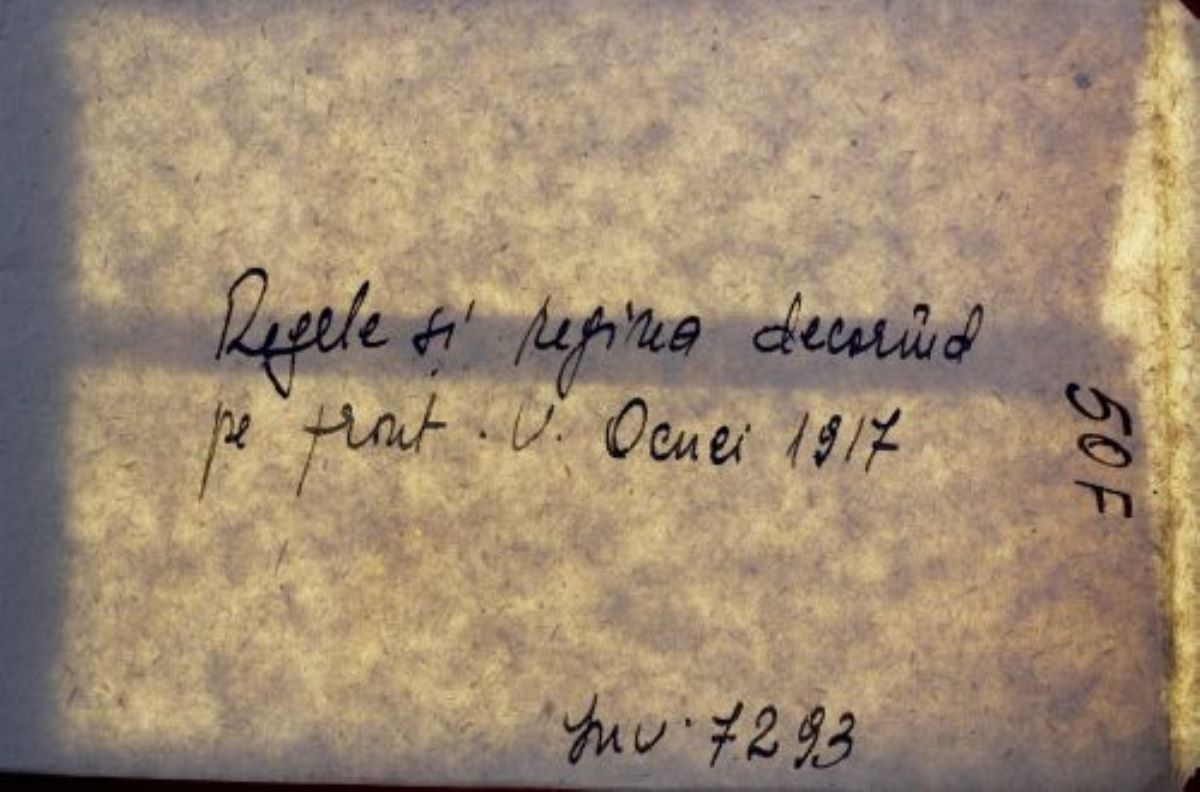 Regele și regina decorînd
pe front. V. Ocnei 1917
50F
Inv. 7293